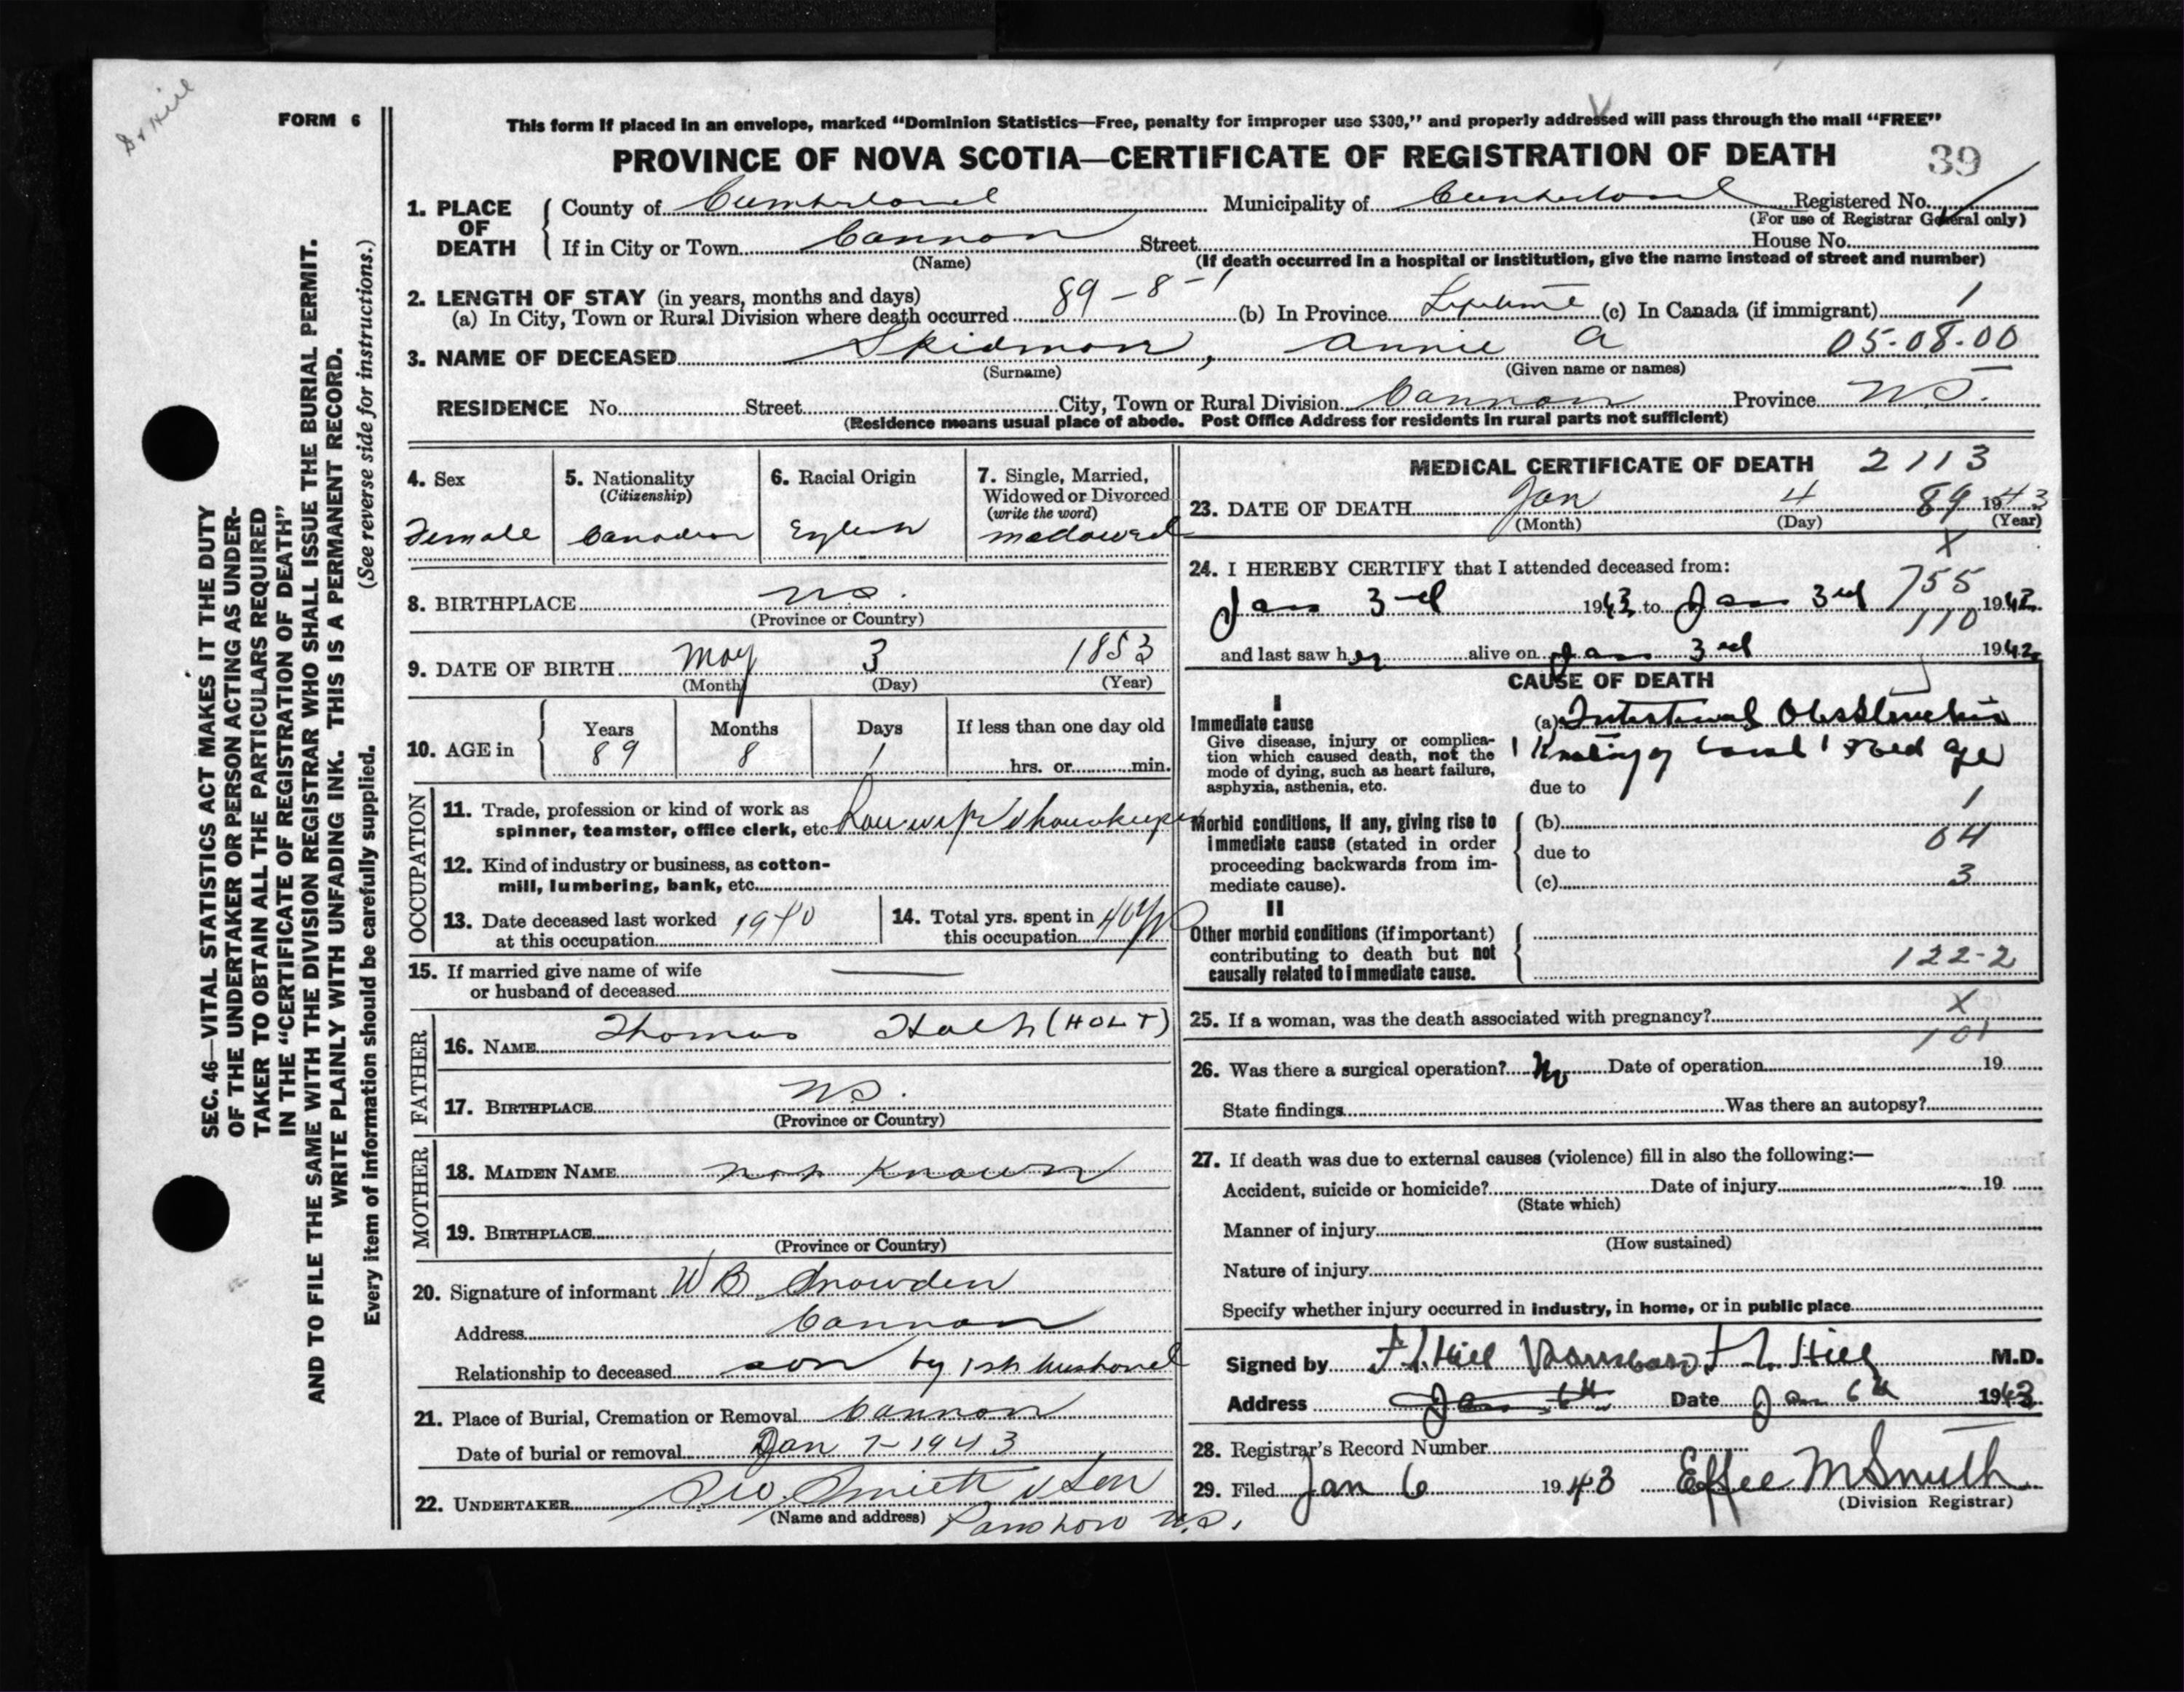 Dr Hill
FORM 6
This form if placed in an envelope, marked “Dominion Statistics—Free, penalty for improper use $300,” and properly addressed will pass through the mail “FREE”
PROVINCE OF NOVA SCOTIA—CERTIFICATE OF REGISTRATION OF DEATH 39
1. PLACE OF DEATH
County of Cumberland Municipality of Cumberland Registered No.
(For use of Registrar General only)
If in City or Town Cannon Street House No.
(Name) (If death occurred in a hospital or institution, give the name instead of street and number)
2. LENGTH OF STAY (in years, months and days)
(a) In City, Town or Rural Division where death occurred 89-8-1 (b) In Province Lifetime (c) In Canada (if immigrant) 1
3. NAME OF DECEASED Skidmore, Annie A 05-08-00
(Surname) (Given name or names)
RESIDENCE No. Street City, Town or Rural Division Cannon Province N.S.
(Residence means usual place of abode. Post Office Address for residents in rural parts not sufficient)
4. Sex
Female
5. Nationality
(Citizenship)
Canadian
6. Racial Origin
English
7. Single, Married,
Widowed or Divorced
(write the word)
8. BIRTHPLACE N.S.
(Province or Country)
9. DATE OF BIRTH May 3 1853
(Month) (Day) (Year)
10. AGE in
Years Months Days If less than one day old
89 8 1 hrs. or min.
OCCUPATION
11. Trade, profession or kind of work as
spinner, teamster, office clerk, etc.
12. Kind of industry or business, as cotton-
mill, lumbering, bank, etc.
13. Date deceased last worked
at this occupation 1940
14. Total yrs. spent in
this occupation
15. If married give name of wife
or husband of deceased —
FATHER
16. NAME Thomas Holt (HOLT)
17. BIRTHPLACE N.S.
(Province or Country)
MOTHER
18. MAIDEN NAME not known
19. BIRTHPLACE
(Province or Country)
20. Signature of informant W B Snowden
Address Cannon
Relationship to deceased son by 1st husband
21. Place of Burial, Cremation or Removal Cannon
Date of burial or removal Jan 7-1943
22. UNDERTAKER Geo. Smith & Son
(Name and address) Parrsboro N.S.
MEDICAL CERTIFICATE OF DEATH 2113
23. DATE OF DEATH Jan 4 89 1943
(Month) (Day) (Year)
X
24. I HEREBY CERTIFY that I attended deceased from:
755
Jan 3rd 1943 to Jan 3rd 1942
110
and last saw her alive on Jan 3rd 1942
CAUSE OF DEATH
I
Immediate cause
Give disease, injury or complica-
tion which caused death, not the
mode of dying, such as heart failure,
asphyxia, asthenia, etc.
(a) Intestinal Obstruction
age
due to
1
Morbid conditions, if any, giving rise to
immediate cause (stated in order
proceeding backwards from im-
mediate cause).
(b)
04
due to
(c) 3
II
Other morbid conditions (if important)
contributing to death but not
causally related to immediate cause.
122-2
25. If a woman, was the death associated with pregnancy? X
101
26. Was there a surgical operation? No Date of operation 19
State findings Was there an autopsy?
27. If death was due to external causes (violence) fill in also the following:—
Accident, suicide or homicide? Date of injury 19
(State which)
Manner of injury
(How sustained)
Nature of injury
Specify whether injury occurred in industry, in home, or in public place
Signed by F. L. Hill Parrsboro F. L. Hill M.D.
Address Jan 6th Date Jan 6th 1943
28. Registrar's Record Number
29. Filed Jan 6 1943 Effee M Smith
(Division Registrar)
SEC. 46—VITAL STATISTICS ACT MAKES IT THE DUTY
OF THE UNDERTAKER OR PERSON ACTING AS UNDER-
TAKER TO OBTAIN ALL THE PARTICULARS REQUIRED
IN THE “CERTIFICATE OF REGISTRATION OF DEATH”
AND TO FILE THE SAME WITH THE DIVISION REGISTRAR WHO SHALL ISSUE THE BURIAL PERMIT.
WRITE PLAINLY WITH UNFADING INK. THIS IS A PERMANENT RECORD.
Every item of information should be carefully supplied. (See reverse side for instructions.)